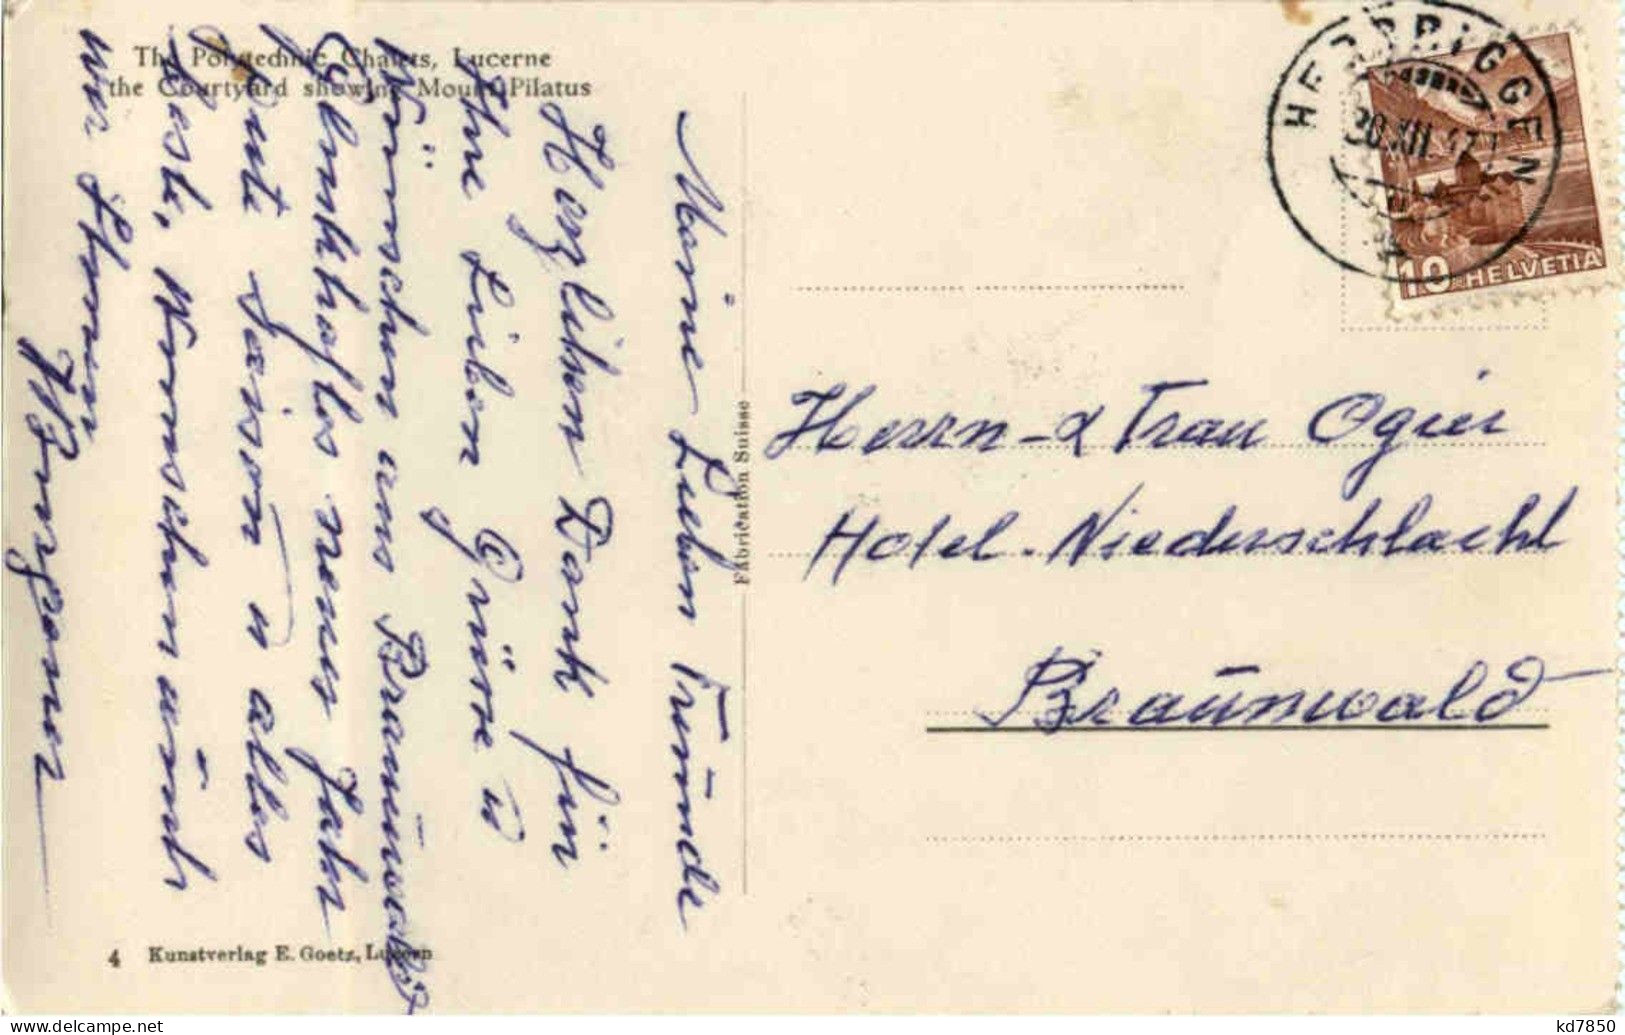 The Polytechnic Chalets, Lucerne
the Courtyard showing Mount Pilatus
Meine Lieben Freunde
Herzlichen Dank für
Ihre Lieben Grüsse u
Wünschen aus Braunwald
Glückhaftes neues Jahr
Gute Saison u alles
Beste, wünschen auch
wir Ihnen
Burgener
Fabrication Suisse
4 Kunstverlag E. Goetz, Luzern
HERBRIGGEN
30.XII.47
10 HELVETIA
Herrn & Frau Ogier
Hotel-Niederschlacht
Braunwald
delcampe.net
kd7850